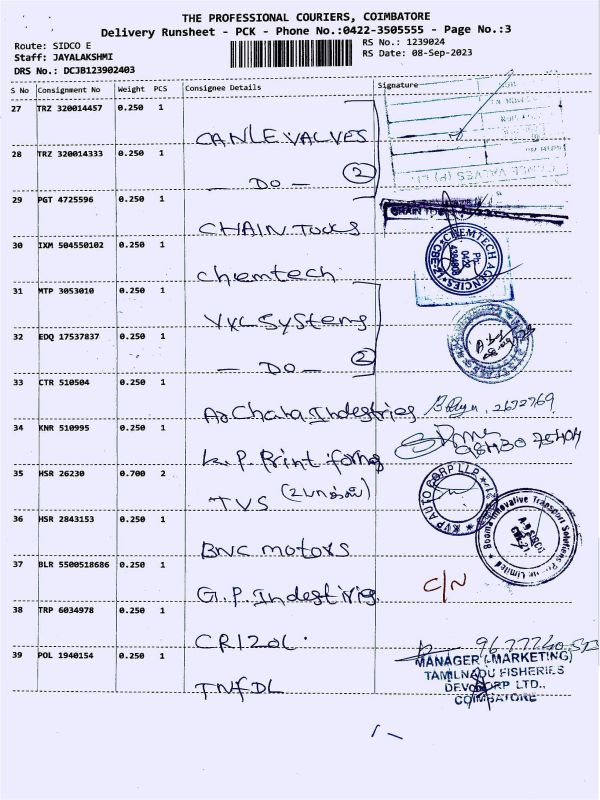 THE PROFESSIONAL COURIERS, COIMBATORE
Delivery Runsheet - PCK - Phone No.:0422-3505555 - Page No.:3
Route: SIDCO E
RS No.: 1239024
Staff: JAYALAKSHMI
RS Date: 08-Sep-2023
DRS No.: DCJB123902403
S No Consignment No Weight PCS Consignee Details Signature
27 TRZ 320014457 0.250 1
CANLE VALVES
28 TRZ 320014333 0.250 1
— DO — 2
29 PGT 4725596 0.250 1
CHAIN
30 IXM 504550102 0.250 1
Chemtech
CHEMTECH AGENCIES
31 MTP 3053010 0.250 1
Systems
32 EDQ 17537837 0.250 1
— DO — 2
33 CTR 510504 0.250 1
Indestries
34 KNR 510995 0.250 1
K.P. Print
35 HSR 26230 0.700 2
TVS
KVP AUTO CORP LLP
36 HSR 2843153 0.250 1
BNC motors
Booma Innovative Transport Solutions Private Limited
37 BLR 5500518686 0.250 1
G.P. Indestiries
C/N
38 TRP 6034978 0.250 1
CRIZOL.
39 POL 1940154 0.250 1
TNFDL
MANAGER (MARKETING)
TAMILNADU FISHERIES
DEV.CORP LTD.,
COIMBATORE